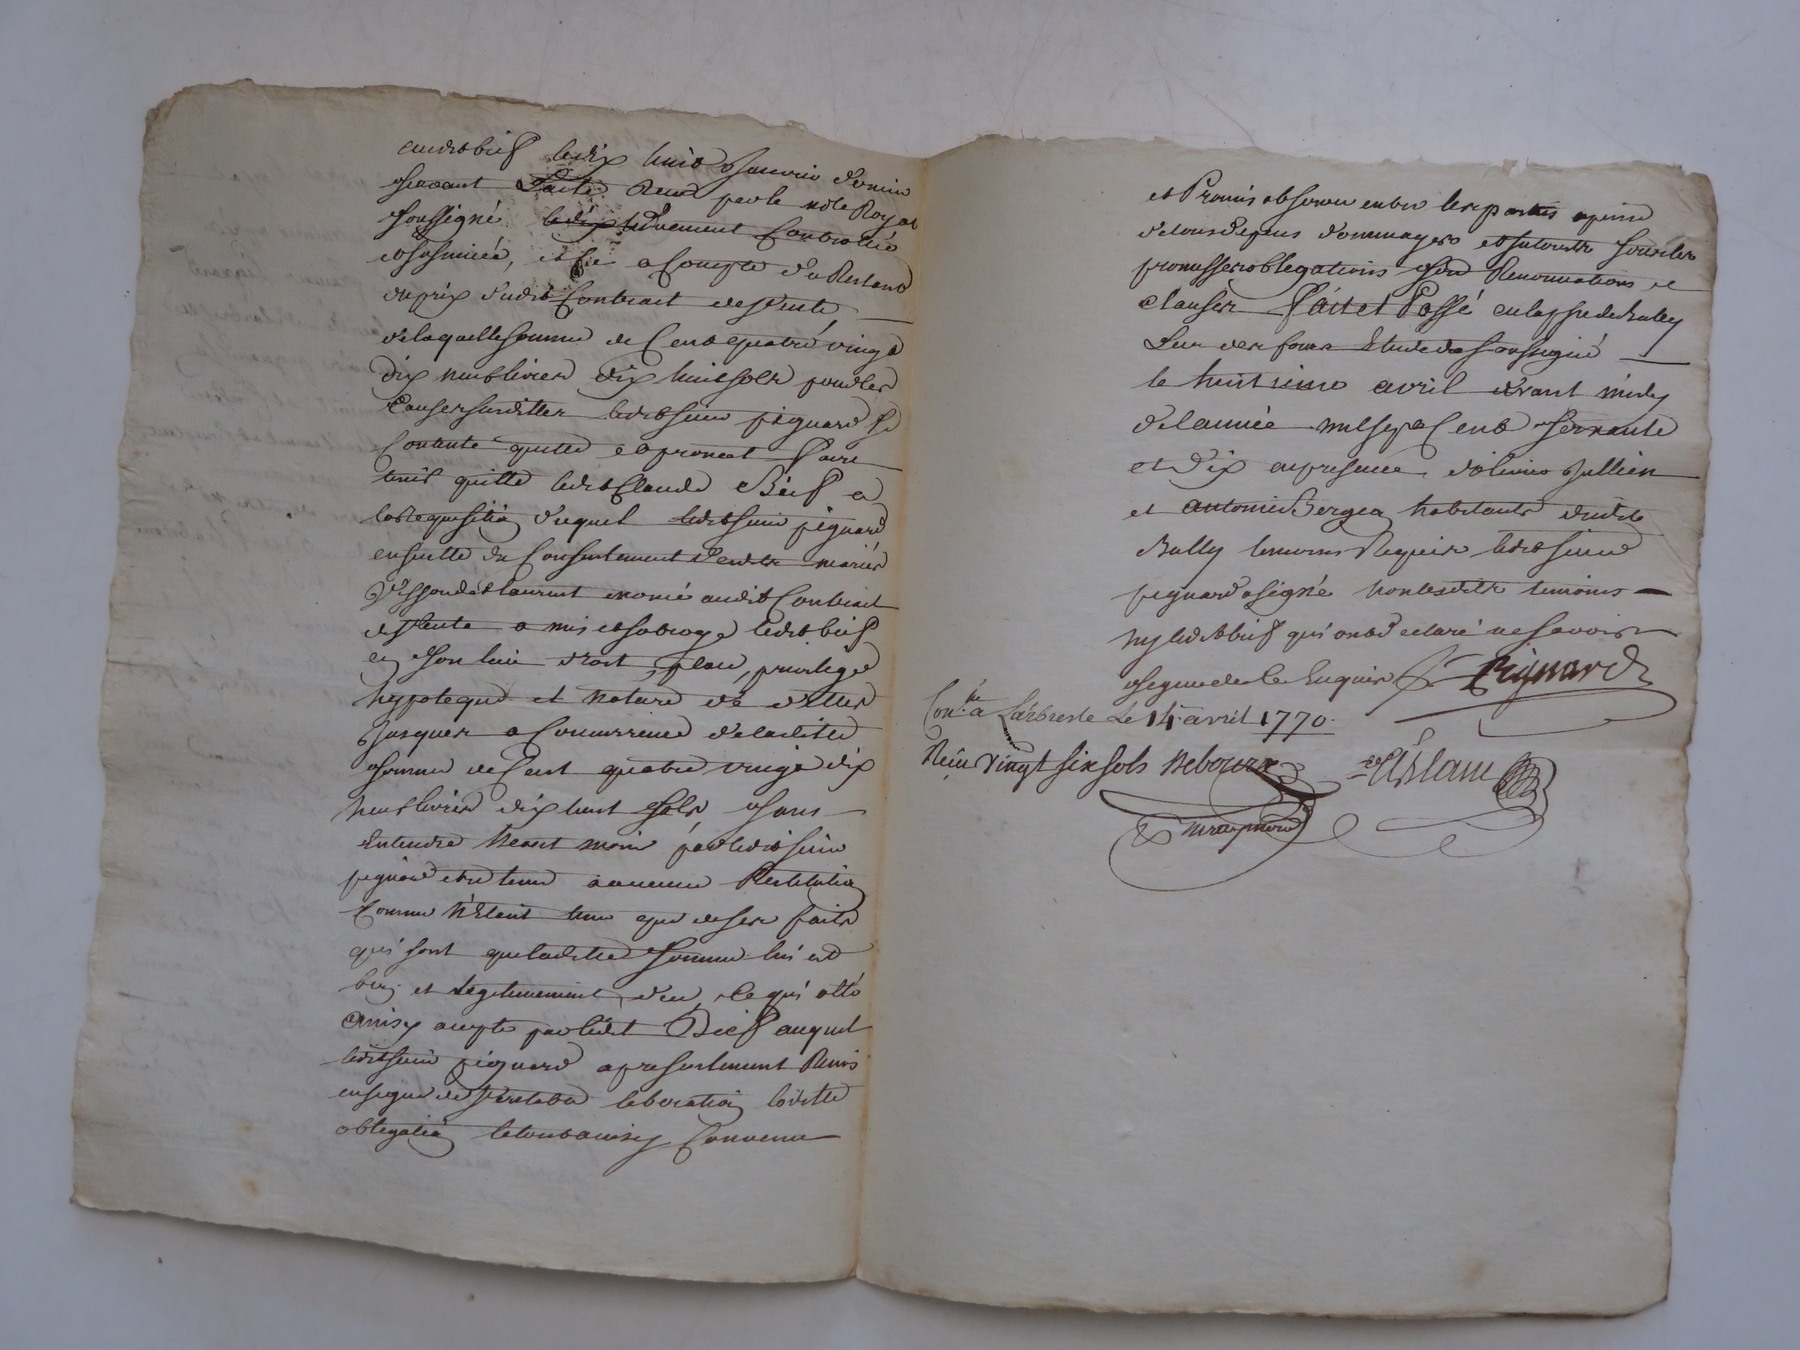 audit bief le dix huit Janvier dernier
devant Reçu par le not.e Royal
soussigné düement Controllé
et insinué, et ce a Compte du Restant
du prix dudit Contrait de vente
de laquelle somme de Cent quatre vingt
dix neuf livres dix huit sols pour les
Causes susdittes ledit sieur pignard se
Contente quitte et promet faire
tenir quitte ledit Claude Bief a
la Requisition duquel ledit sieur pignard
ensuitte du Consentement desdits mariés
et laurent enoncé audit Contrait
de vente a mis et subrogé ledit bief
en son lieu droit, place, privilege
hypoteque et nature de dettes
Jusques a Concurrence de laditte
somme de Cent quatre vingt dix
neuf livres dix huit sols sans
Entendre neant moins par ledit sieur
pignard etre tenu a aucune Restitution
Comme n'étant tenu que de ses faits
qui sont que laditte somme lui est
bien et legitimement düe, Ce qui a été
ainsy accepté par ledit Bief auquel
ledit sieur pignard a presentement Remis
en signe de veritable liberation laditte
obligation le tout ainsy Convenu
et Promis observer entre les parties a peine
de tous depens dommages et interets sous les
promesses obligations Renonciations et
clauses Fait et Passé en la p.sse de Bully
Lieu des fours Etude du soussigné
le huitieme avril avant midy
de l'année mil sept Cent soixante
et dix en presence d'olivier Jullien
et antoine Berger habitants dudit
Bully temoins Requis ledit sieur
pignard a signé non lesdits temoins
ny ledit bief qui ont declaré ne savoir
signer de ce Enquis Pignard
Con.lé a Larbresle Le 14 avril 1770.
Reçu vingt six sols